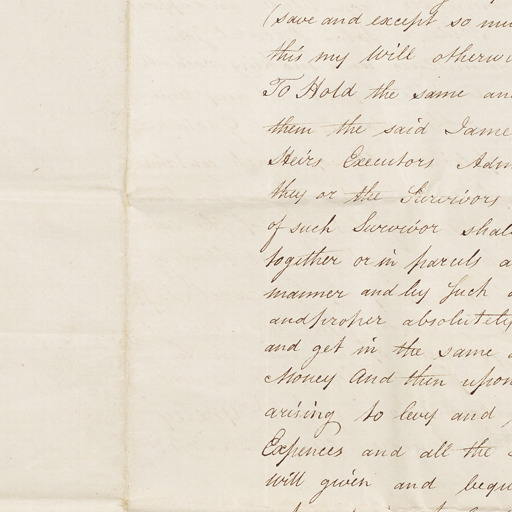 (save and except so mu
this my Will otherwi
To Hold the same an
them the said Jame
Heirs Executors Adm
they or the Survivors
of such Survivor shal
together or in parcels a
manner and by Such
and proper absolutely
and get in the same
Money And then upon
arising to levy and
Expences and all the
will given and bequ